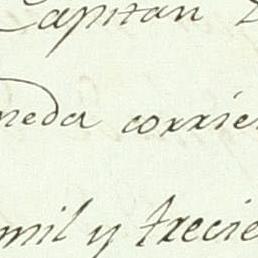 Capitan
neda corrie
mil y trecie